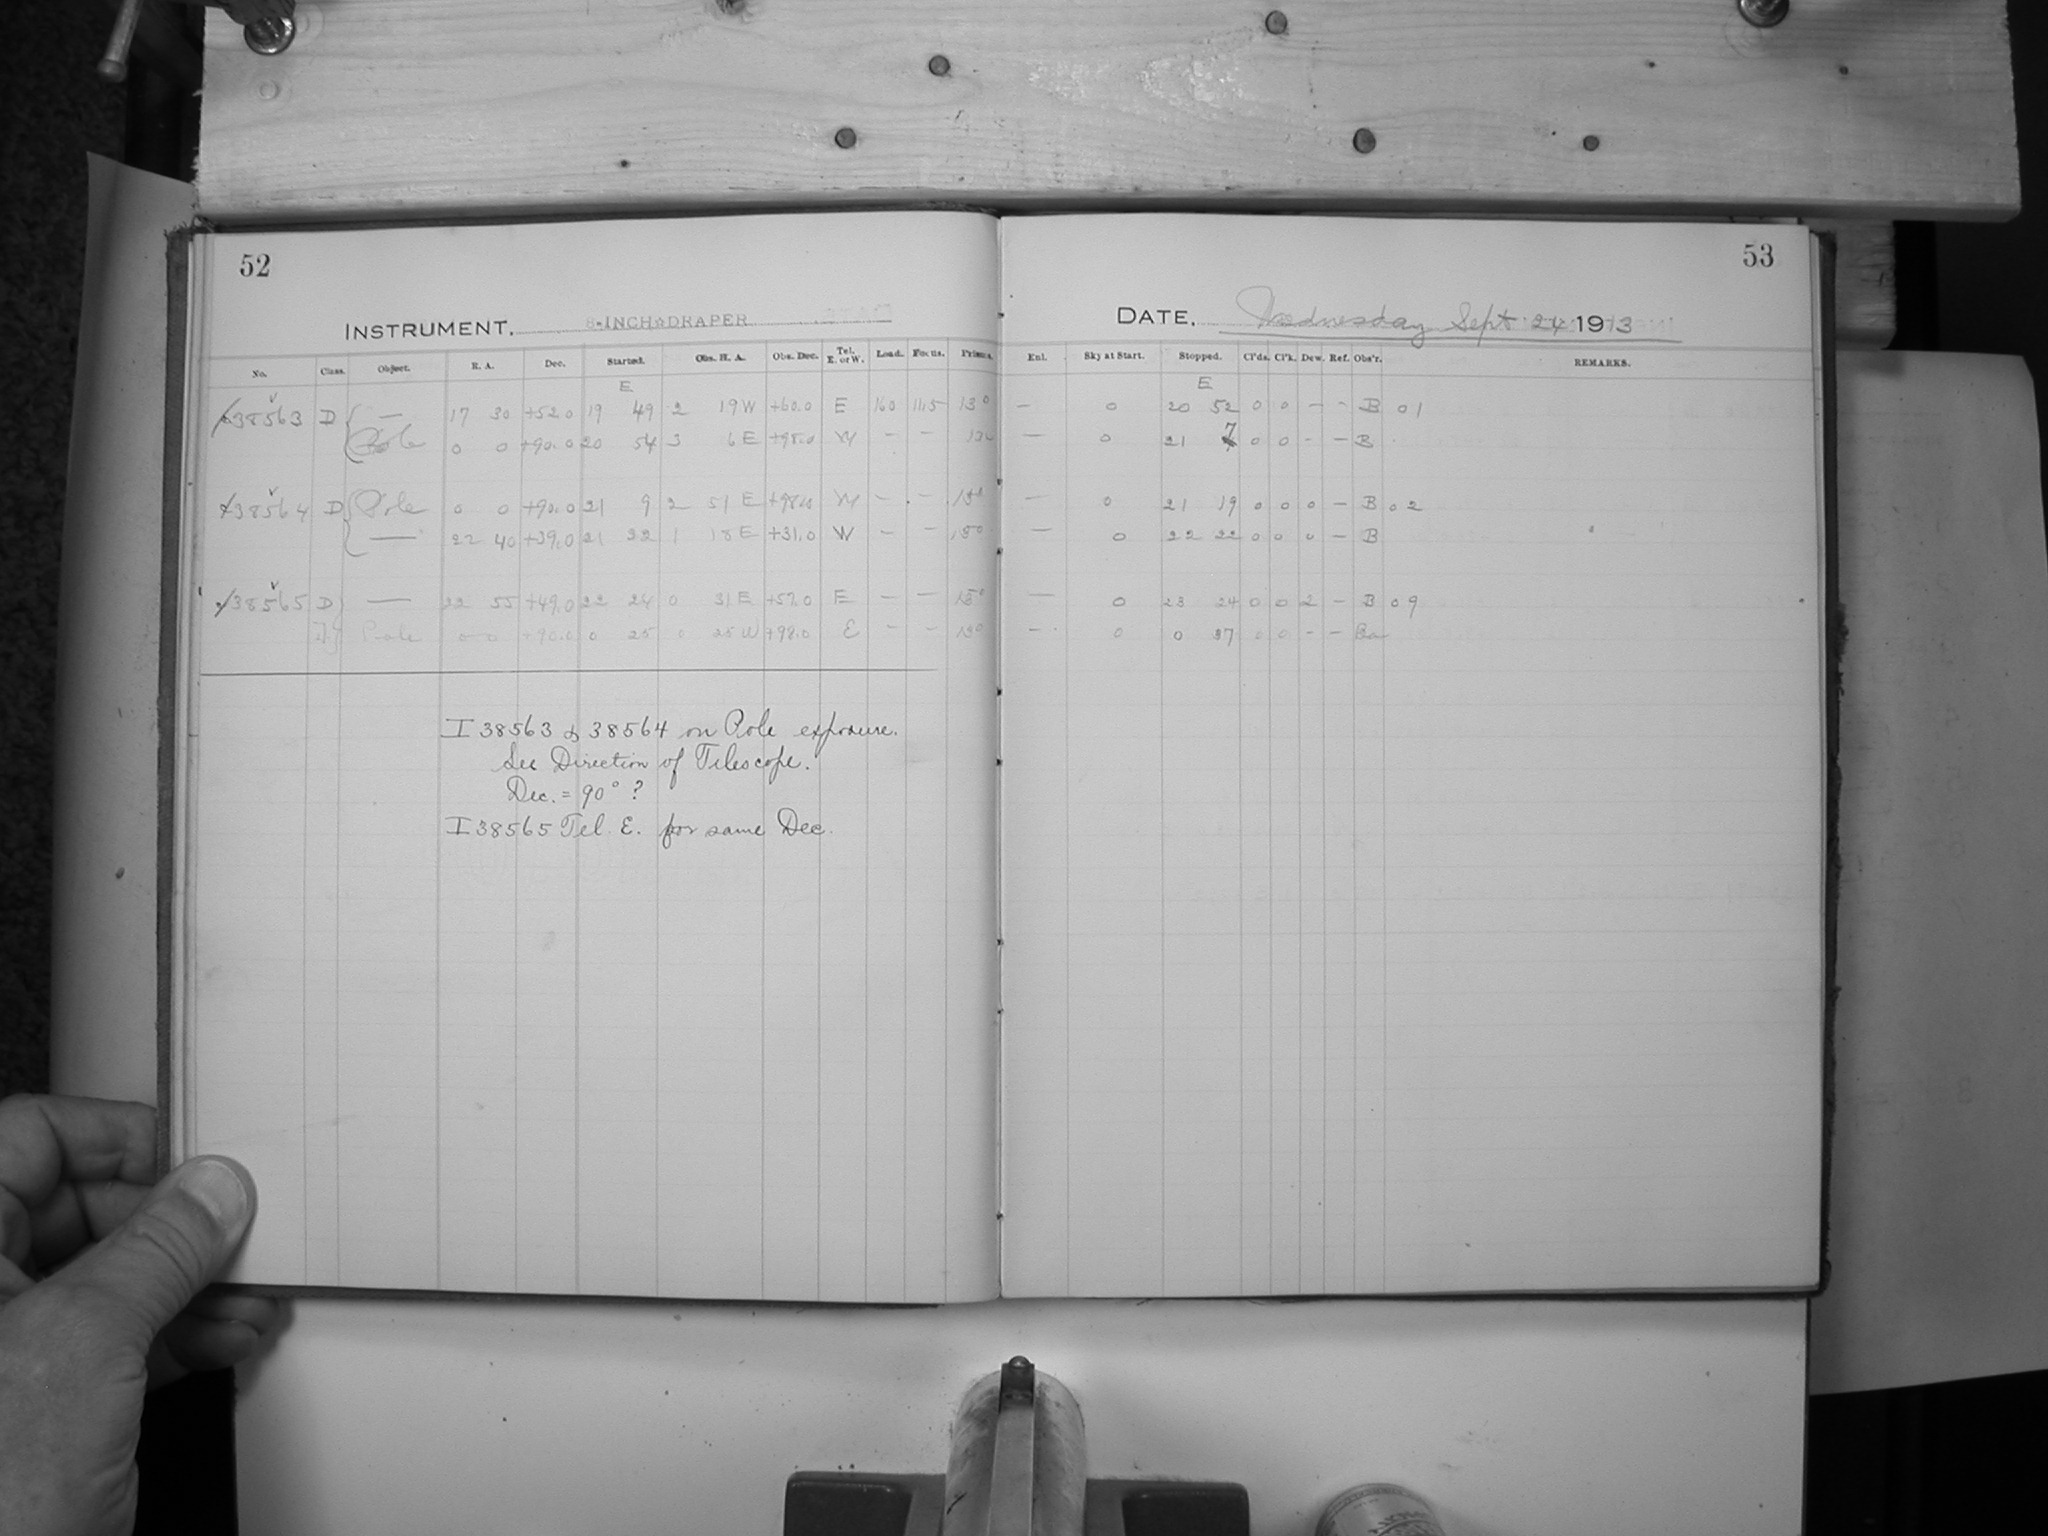 52
INSTRUMENT. 8-INCH DRAPER
No. Class. Object. R. A. Dec. Started. Obs. H. A. Obs. Dec. Tel. E. or W. Load. Focus. Prisms.
E
38563 D — 17 30 +52.0 19 49 2 19 W +60.0 E 160 11.5 13°
Pole 0 0 +90.0 20 54 3 6 E +98.0 W — —
38564 D Pole 0 0 +90.0 21 9 2 51 E +98.0 W — —
— 22 40 +39.0 21 22 1 18 E +31.0 W — —
38565 D — 22 55 +49.0 22 24 0 31 E +57.0 E — —
Pole 0 0 +90.0 0 25 0 25 W +98.0 E — —
I 38563 & 38564 on Pole exposure.
See Direction of Telescope.
Dec. = 90° ?
I 38565 Tel. E. for same Dec.
53
DATE, Wednesday Sept 24 1913
Enl. Sky at Start. Stopped. Cl'ds. Cl'k. Dew. Ref. Obs'r. REMARKS.
E
— 0 20 52 0 0 – – B 01
— 0 21 7 0 0 – – B
— 0 21 19 0 0 0 – B 02
— 0 22 22 0 0 0 – B
— 0 23 24 0 0 2 – B 09
— 0 0 37 0 0 – –